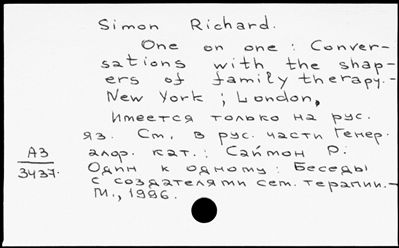 Simon Richard.
One on one : Conver-
sations with the shap-
ers of family therapy.-
New York ; London,
Имеется только на рус.
яз. См. в рус. части Генер.
алф. кат.: Саймон Р.
АЗ
3437.
Один к одному : Беседы
с создателями сем. терапии.-
М., 1996.